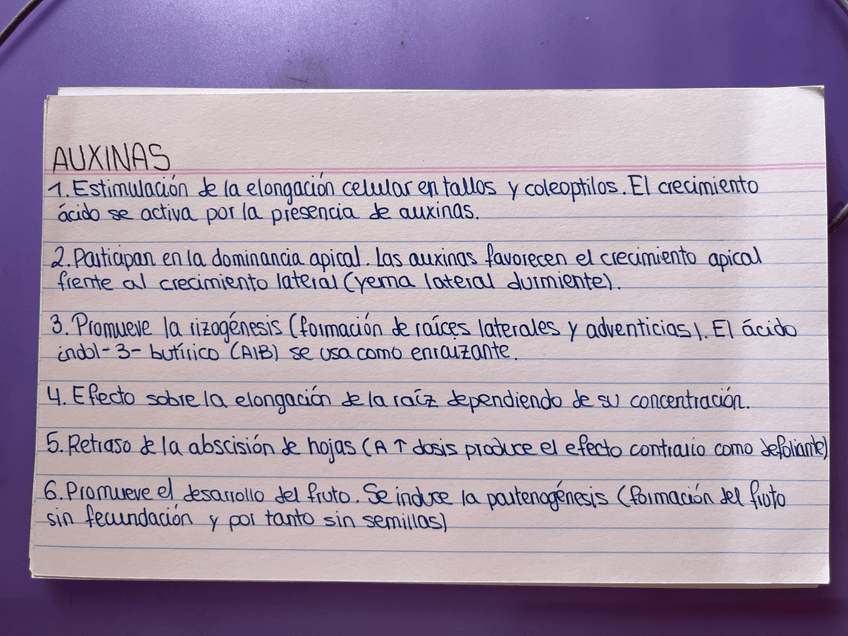 AUXINAS
1. Estimulación de la elongación celular en tallos y coleoptilos. El crecimiento
ácido se activa por la presencia de auxinas.
2. Participan en la dominancia apical. Las auxinas favorecen el crecimiento apical
frente al crecimiento lateral (yema lateral durmiente).
3. Promueve la rizogénesis (formación de raíces laterales y adventicias). El ácido
indol-3-butírico (AIB) se usa como enraizante.
4. Efecto sobre la elongación de la raíz dependiendo de su concentración.
5. Retraso de la abscisión de hojas (A ↑ dosis produce el efecto contrario como defoliante)
6. Promueve el desarrollo del fruto. Se induce la partenogénesis (formación del fruto
sin fecundación y por tanto sin semillas)